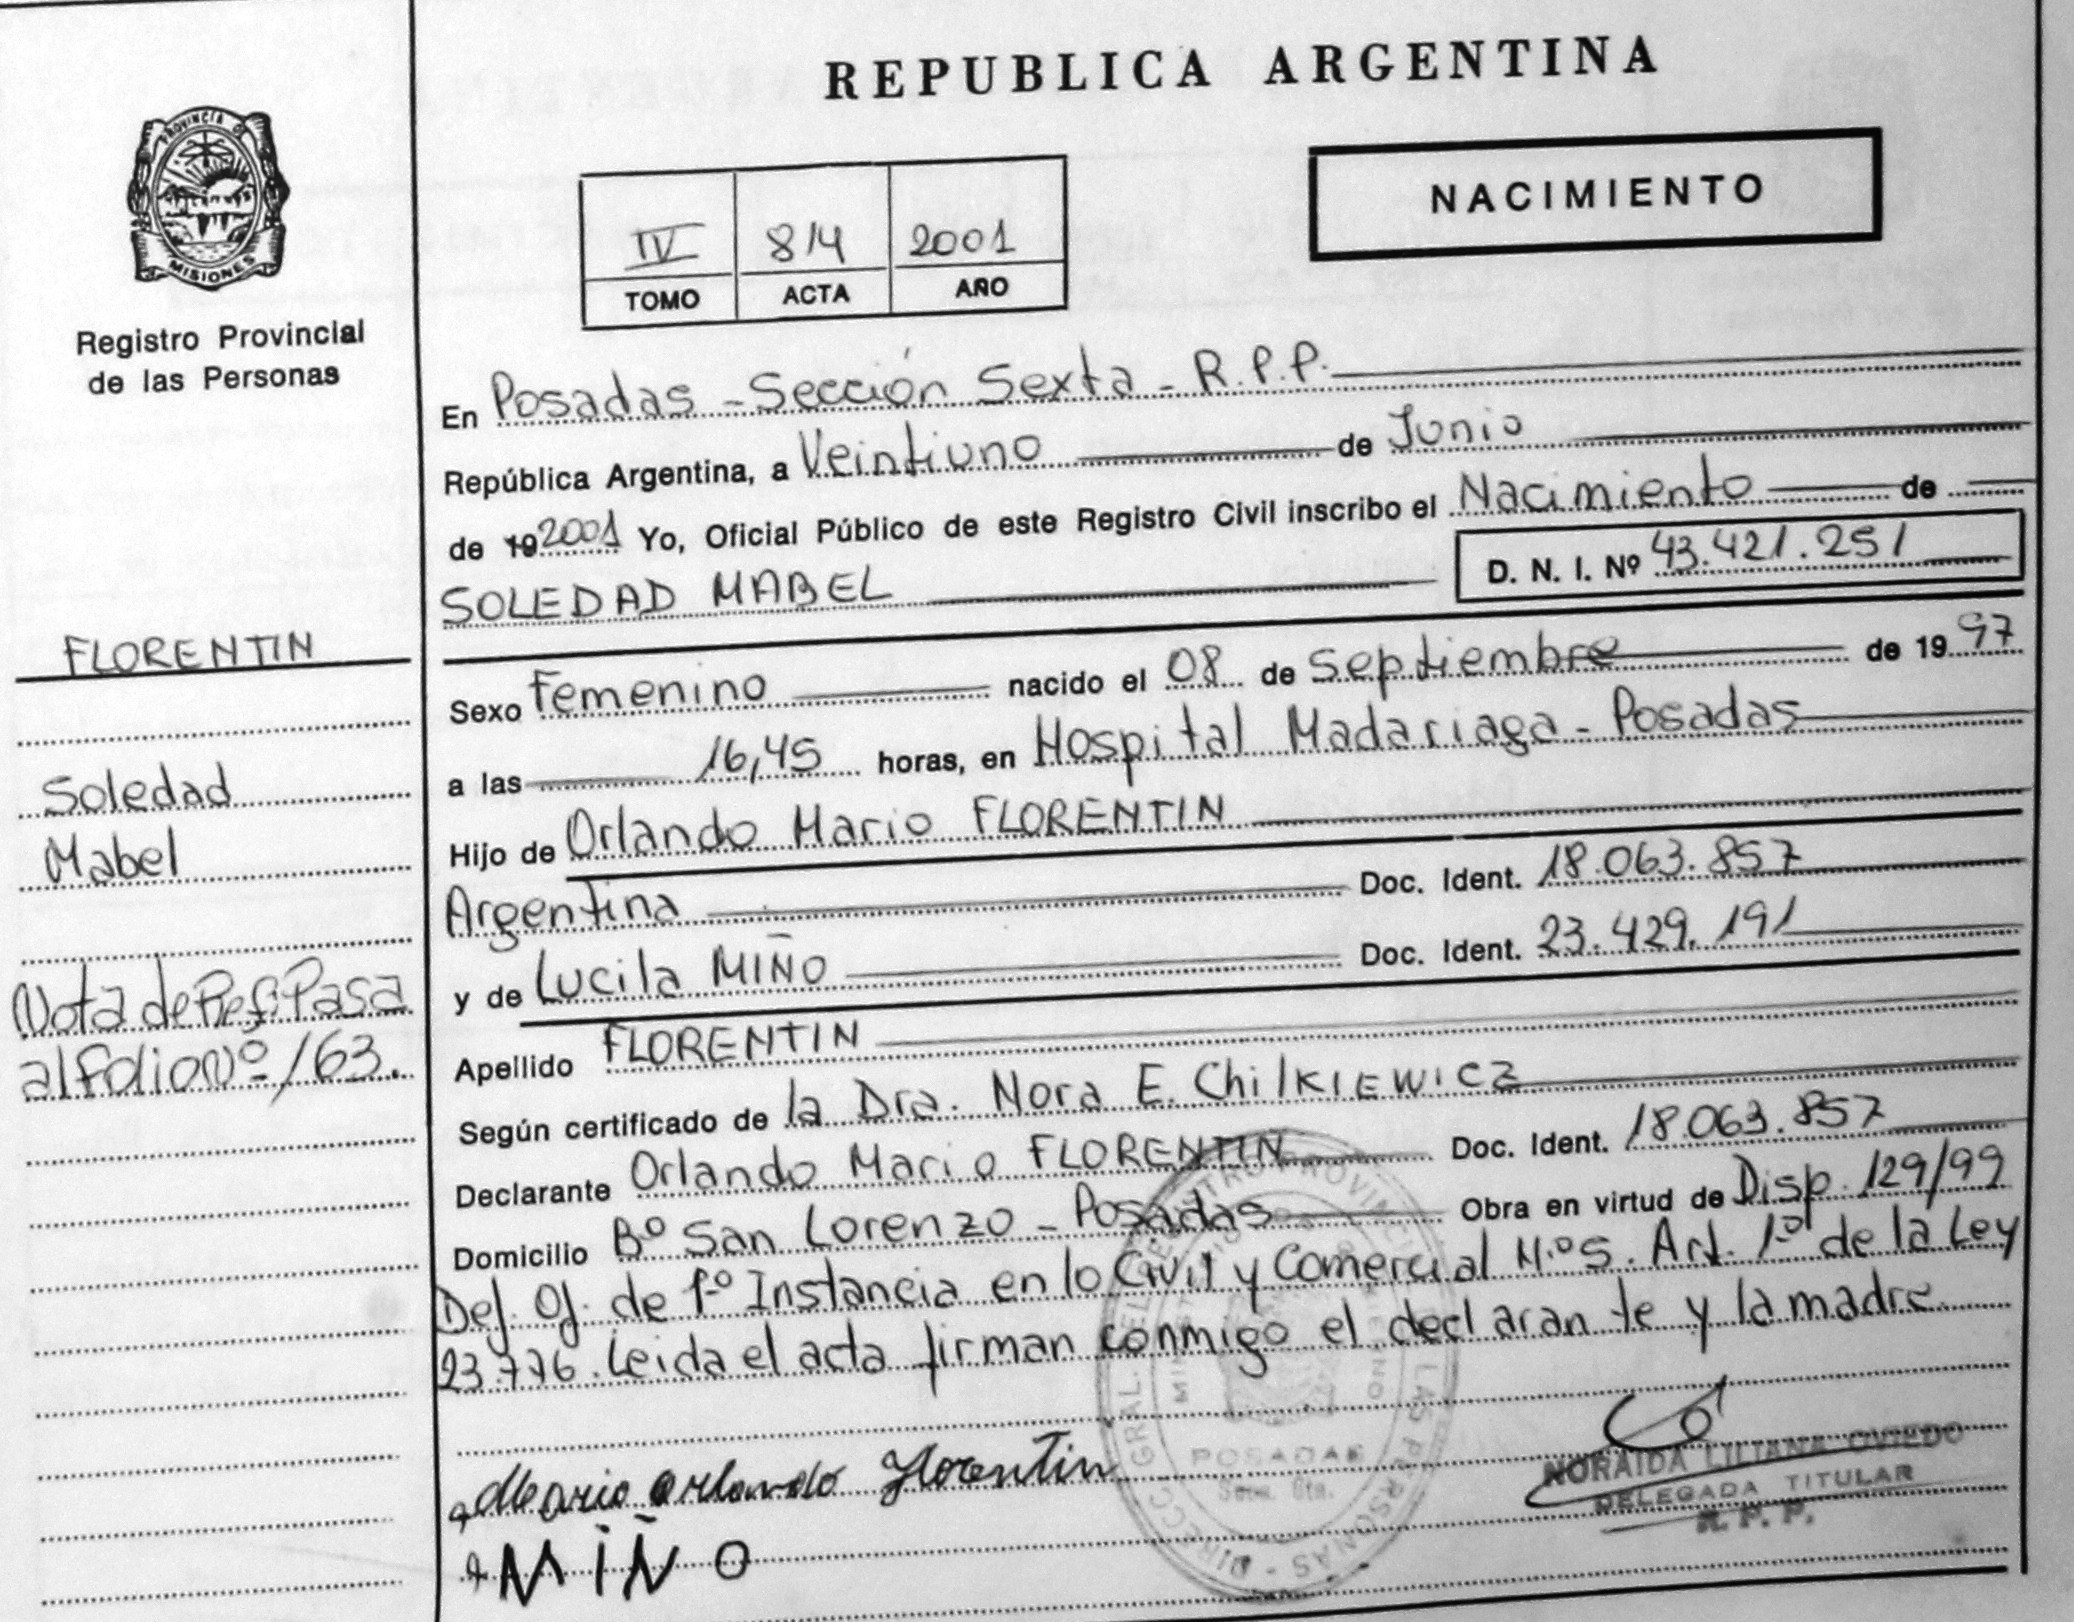 REPUBLICA ARGENTINA
PROVINCIA DE
MISIONES
Registro Provincial
de las Personas
NACIMIENTO
IV 814 2001
TOMO ACTA AÑO
En Posadas - Sección Sexta - R.P.P.
República Argentina, a Veintiuno de Junio
de 19 2001 Yo, Oficial Público de este Registro Civil inscribo el Nacimiento de
SOLEDAD MABEL
D. N. I. Nº 43.421.251
FLORENTIN
Soledad
Mabel
Nota de Ref. Pasa
al folio Nº 163.
Sexo Femenino nacido el 08 de Septiembre de 19 97
a las 16,45 horas, en Hospital Madariaga - Posadas
Hijo de Orlando Mario FLORENTIN
Argentina Doc. Ident. 18.063.857
y de Lucila MIÑO Doc. Ident. 23.429.191
Apellido FLORENTIN
Según certificado de la Dra. Nora E. ChilKIEWICZ
Declarante Orlando Mario FLORENTIN Doc. Ident. 18.063.857
Domicilio Bº San Lorenzo - Posadas Obra en virtud de Disp. 129/99
Def. Of. de 1º Instancia en lo Civil y Comercial N.º 5. Art. 1º de la Ley
23.776. Leida el acta firman conmigo el declarante y la madre.
Mario Orlando Florentin
MIÑO
DIRECC. GRAL. DEL REGISTRO PROVINCIAL DE LAS PERSONAS
POSADAS
NORAIDA LILIANA OVIEDO
DELEGADA TITULAR
R. P. P.